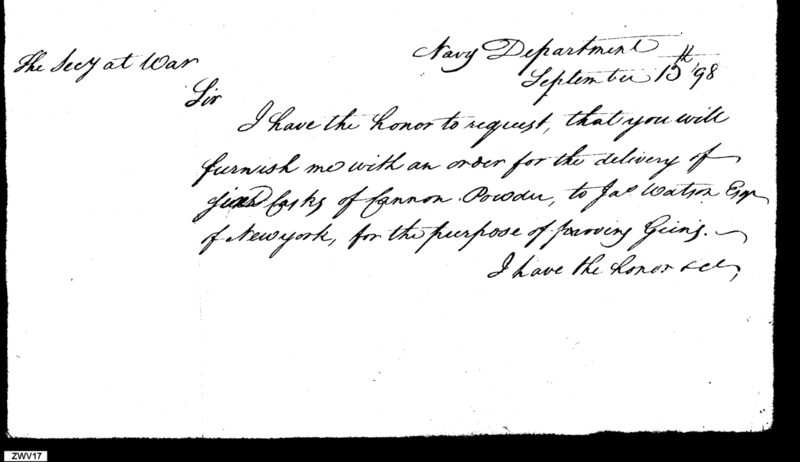 Navy Department
The Secy at War
September 15th '98
Sir
I have the honor to request, that you will
furnish me with an order for the delivery of
Casks of Cannon Powder, to Jas Watson Esqr
of New york, for the purpose of proving Guns.
I have the honor &c
ZWV17